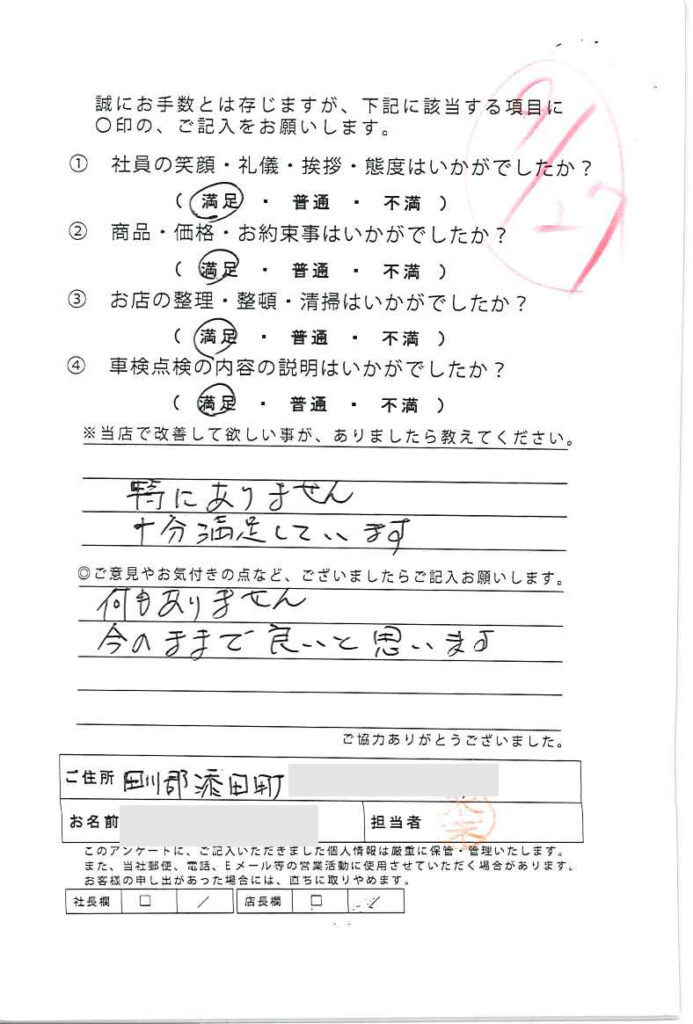 9/27
誠にお手数とは存じますが、下記に該当する項目に
〇印の、ご記入をお願いします。
① 社員の笑顔・礼儀・挨拶・態度はいかがでしたか?
( 満足 ・ 普通 ・ 不満 )
② 商品・価格・お約束事はいかがでしたか?
( 満足 ・ 普通 ・ 不満 )
③ お店の整理・整頓・清掃はいかがでしたか?
( 満足 ・ 普通 ・ 不満 )
④ 車検点検の内容の説明はいかがでしたか?
( 満足 ・ 普通 ・ 不満 )
※当店で改善して欲しい事が、ありましたら教えてください。
特にありません
十分満足しています
◎ご意見やお気付きの点など、ございましたらご記入お願いします。
何もありません
今のままで良いと思います
ご協力ありがとうございました。
ご住所 田川郡添田町
お名前 担当者
このアンケートに、ご記入いただきました個人情報は厳重に保管・管理いたします。
また、当社郵便、電話、Eメール等の営業活動に使用させていただく場合があります。
お客様の申し出があった場合には、直ちに取りやめます。
社長欄 □ / 店長欄 □ /